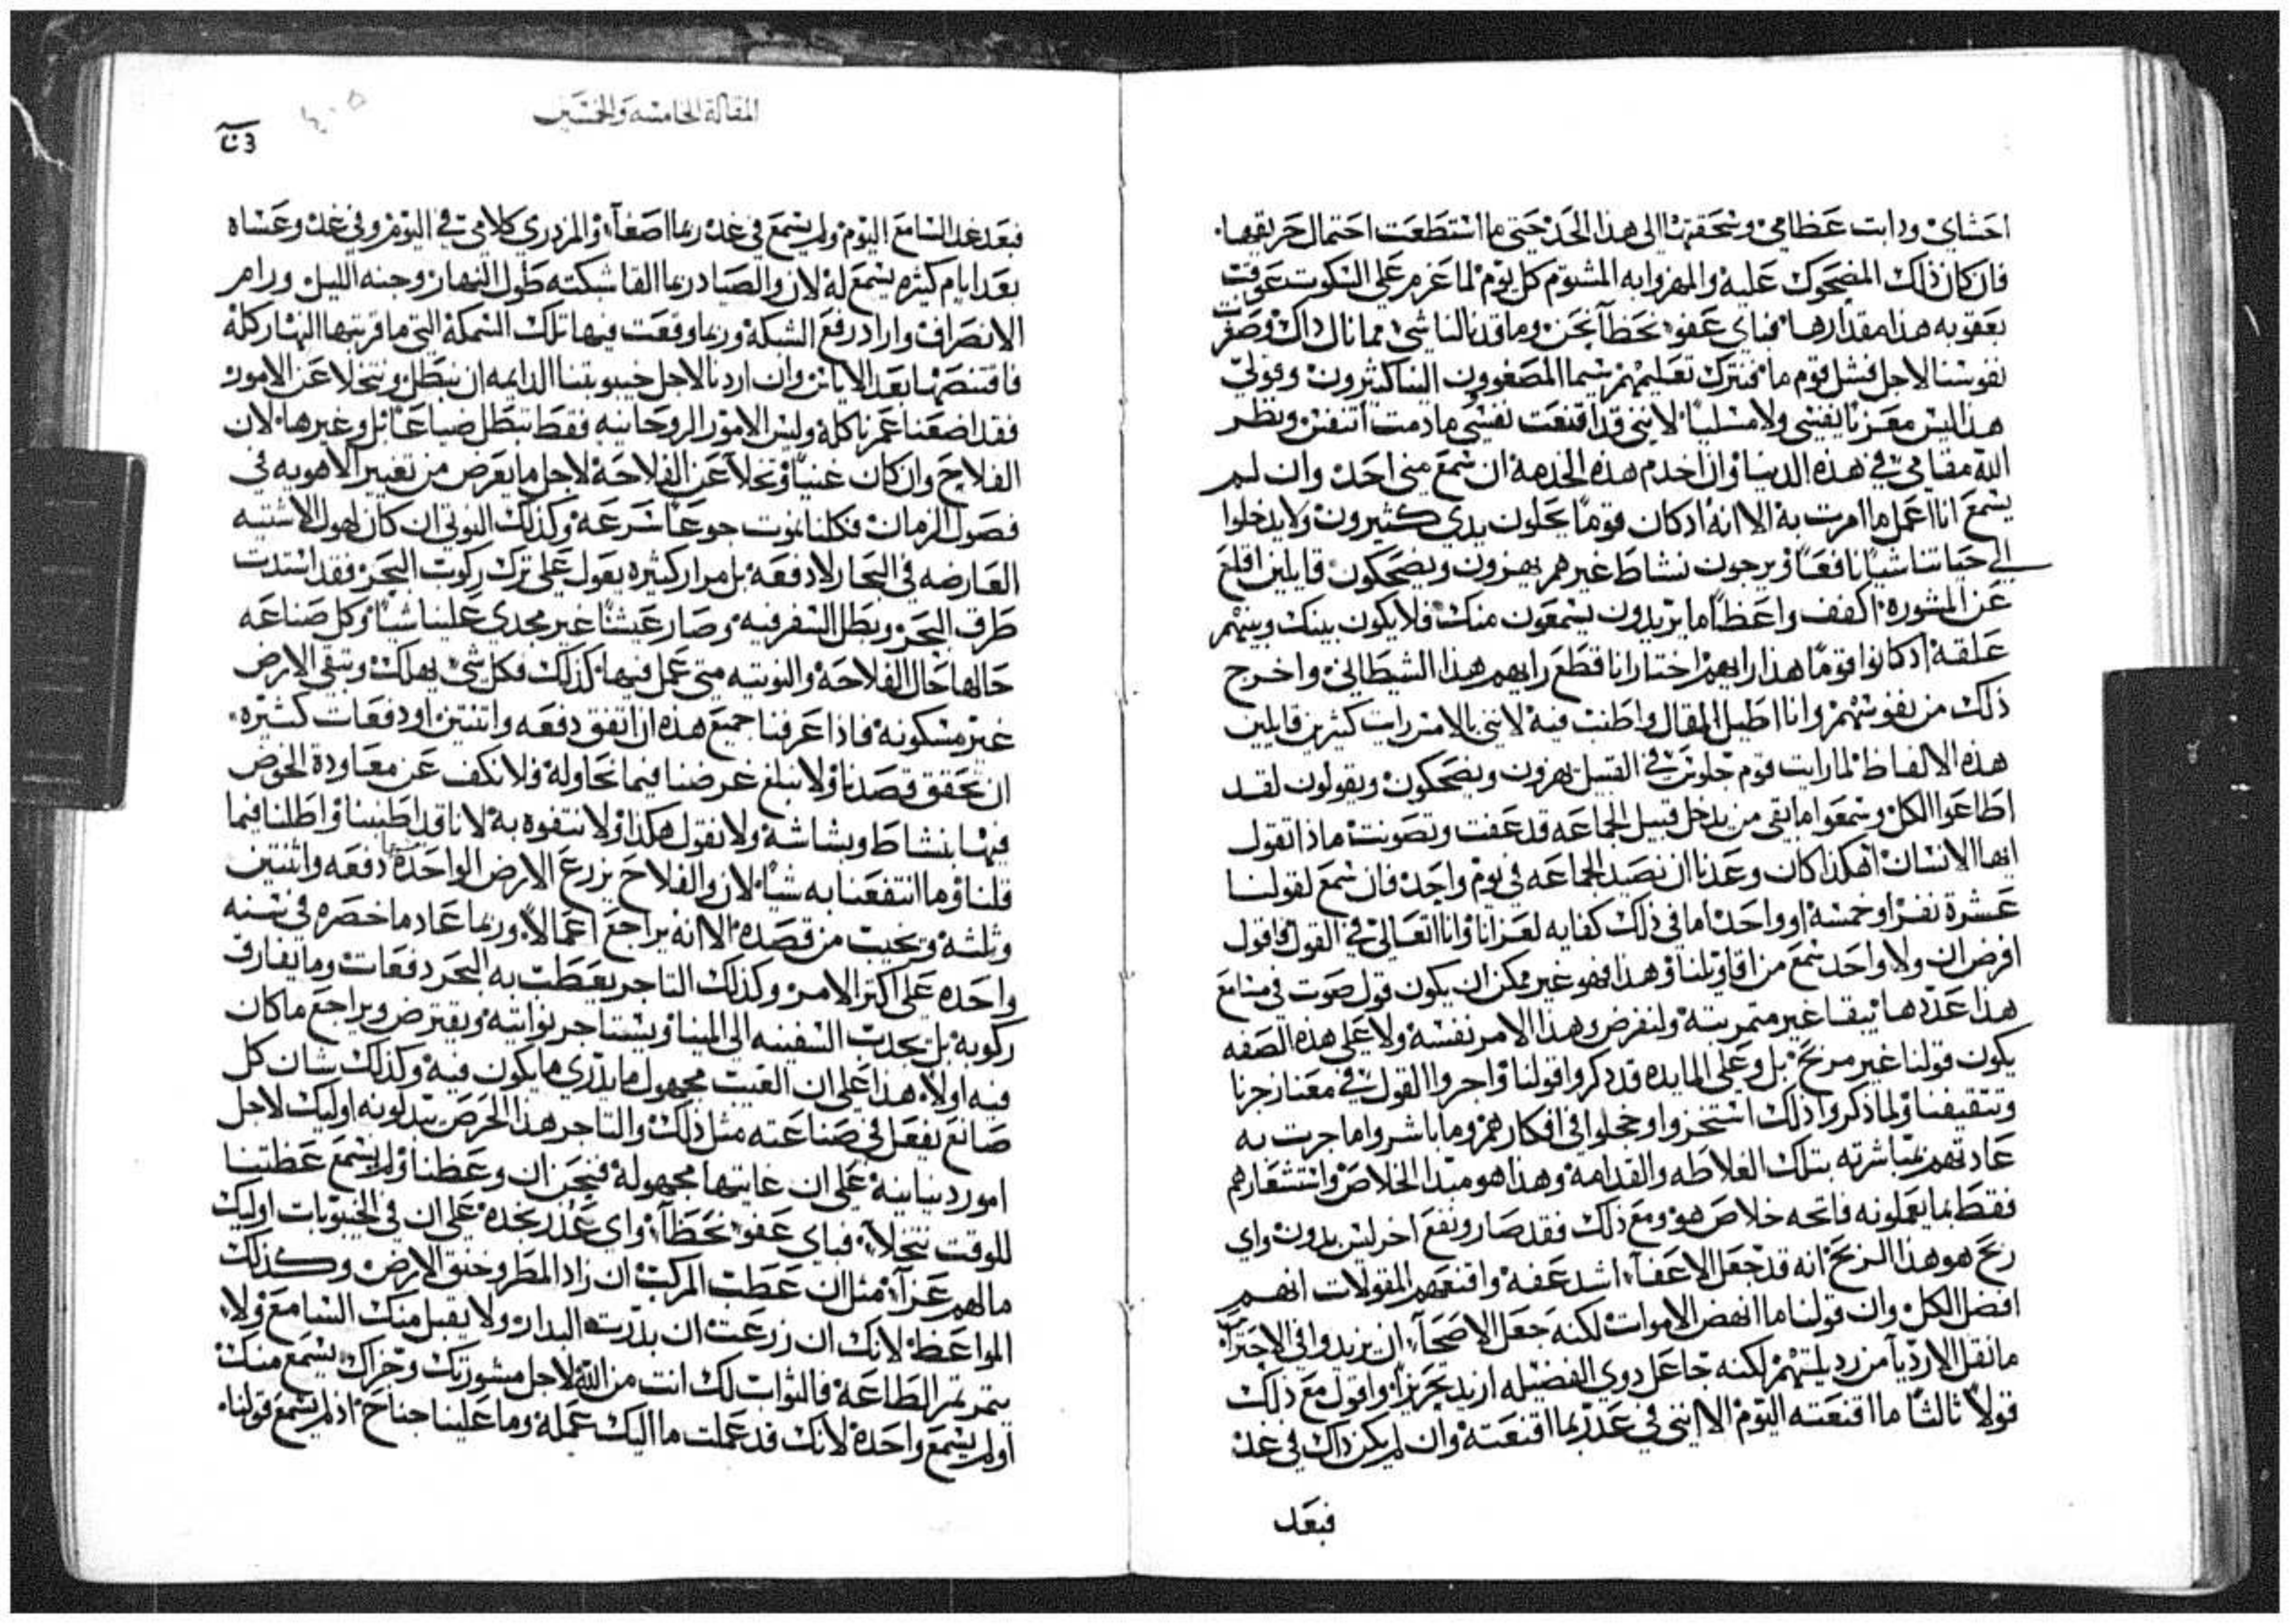 احشاي ودابت عظامي وسحقتها الي هذا الحد حتي ما استطعت احتمال حريقها.
فان كان ذلك المضحوك عليه والمهزوا به المشتوم كل يوم لما عزم علي السكوت عوقب
بعقوبه هذا مقدارها فباي عفو نحظا نحن وما قد نالنا شي مما نال ذاك وصغرت
نفوسنا لاجل فشل قوم ما فنترك تعليمهم سيما المصغوون الينا كثيرون وقولي
هذا ليس معزيا نفسي ولا مسليا لانني قد اقنعت نفسي مادمت اتنفس ونظر
الله مقامي في هذه الدنيا وان اخدم هذه الخدمه ان سمع مني احد وان لم
يسمع انا اعمل ما امرت به الا انه اذ كان قوما يحلون يدي كثيرون ولا يدخلوا
الي حياتنا شيا نافعا ويرجون نشاط غيرهم يهزون ويضحكون قايلين اقلع
عن المشوره اكفف واعظا ما يريدون يسمعون منك فلا يكون بينك وبينهم
علقه اذ كانوا قوما هذا رايهم اختار انا قطع رايهم هذا الشيطاني واخرج
ذلك من نفوسهم وانا اطيل المقال واطنب فيه لانني بالامس رايت كثيرين قايلين
هذه الالفاظ لما رايت قوم جلوس في القبيل يهزون ويضحكون ويقولون لقد
اطاعوا الكل وسمعوا ما بقي من يدخل قبيل الجماعه قد عفت وتصونت ماذا تقول
ايها الانسان اهكذا كان وعدنا ان نصيد الجماعه في يوم واحد فان سمع لقولنا
عشرة نفر او خمسه او واحد اما في ذلك كفايه لعزانا وانا اتعالي في القول فاقول
افرض ان ولا واحد سمع من اقاويلنا وهذا فهو غير ممكن ان يكون قول صوت في مسامع
هذا عددها يبقا غير متمر بته ولنفرض وهذا الامر نفسه ولا علي هذه الصفه
يكون قولنا غير مربح بل وعلي المايده قد ذكروا قولنا واجروا القول في معنا زجرنا
وتثقيفنا ولما ذكروا ذلك استخزوا وخجلوا في افكارهم وما باشروا ما جرت به
عادتهم بمباشرته بتلك الغلاظه والقدامه وهذا هو مبدا الخلاص وانتشعارهم
فقط بما يعملونه فاتحه خلاص هو ومع ذلك فقد صار ونفع اخر ليس بدون واي
ربح هو هذا الربح انه قد جعل الاعفآ اشد عفه واقنعهم المقولات انهم
افضل الكل وان قولنا ما انهض الاموات لكنه جعل الاصحآ ان يزيدوا في الاحتراس
ما نقل الارديآ من رديلتهم لكنه جاعل ذوي الفضيله ازيد تحريزا واقول مع ذلك
قولا ثالثا ما اقنعته اليوم الا انني في غد ربما اقنعته وان لم يكن ذاك في غد
فبعد
المقالة الخامسه والخمسين
فبعد غد السامع اليوم ولم يسمع في غد ربما اصغآ والمزدري كلامي في اليوم وفي غد وعساه
بعد ايام كثيره يسمع له لان والصياد ربما القا شبكته طول النهار وجنه الليل ورام
الانصراف واراد رفع الشبكه وربما وقعت فيها تلك السمكه التي ما قربتها النهار كله
فاقتنصها بعد الاياس وان اردنا لاجل خيبوبتنا الدايمه ان نبطل ونتخلا عن الامور
فقد اضعنا عمرنا كله وليس الامور الروحانيه فقط تبطل ضياعا بل وغيرها لان
الفلاح وان كان عنيا وتخلا عن الفلاحه لاجل ما يعرض من تغيير الاهويه في
فصول الزمان فكلنا نموت جوعا سرعه وكذلك النوتي ان كان لهول الاشتيه
العارضه في البحار لا دفعه بل مرار كثيره يعول علي ترك ركوب البحر فقد استدت
طرق البحر وبطل السفر فيه وصار عيشنا غير مجدي علينا شيا وكل صناعه
حالها حال الفلاحه والنوتيه متي عمل فيها كذلك فكل شي يهلك وتبقي الارض
غير مسكونه فاذا عرفنا جميع هذه ان اتفق دفعه واتنتين او دفعات كثيره
ان تحقق قصدنا ولا نبلغ غرضنا فيما نحاوله ولا نكف عن معاودة الخوض
فيها بنشاط وبشاشه ولا نقول هكذا ولا نتفوه به لانا قد اطنبنا واطلنا فيما
قلنا وما انتفعنا به شيا لان والفلاح يزرع الارض الواحده دفعه واثنتين
وثلثه ويخيب من قصده الا انه يراجع اعمالا وربما عاد ما خصره في سنه
واحده علي اكتر الامر وكذلك التاجر يعطب به البحر دفعات وما يفارق
ركوبه بل يحدب السفينه الي المينا ويستاجر نواتيه ويقترض ويراجع ما كان
فيه اولا هذا علي ان الغيب مجهول ما يدري ما يكون فيه وكذلك شان كل
صانع يفعل في صناعته مثل ذلك والتاجر هذا الحرص يبدلونه اوليك لاجل
امور دنيانيه علي ان غايتها مجهوله فنحن ان وعظنا ولم يسمع عظتنا
للوقت نتخلآ فباي عفو نحظآ واي عذر نجده علي ان في الخيبوبات اوليك
ما لهم عزآ مثل ان عطب المركب ان زاد المطر وخنق الارض وكذلك
المواعظ لانك ان زرعت ان بذرت البدار ولا يقبل منك السامع ولا
يتمر ثمر الطاعه فالثواب لك انت من الله لاجل مشورتك وجزاك يسمع منك
او لم يسمع واحده لانك قد عملت ما اليك عمله وما علينا جناح اذ لم يسمع قولنا.